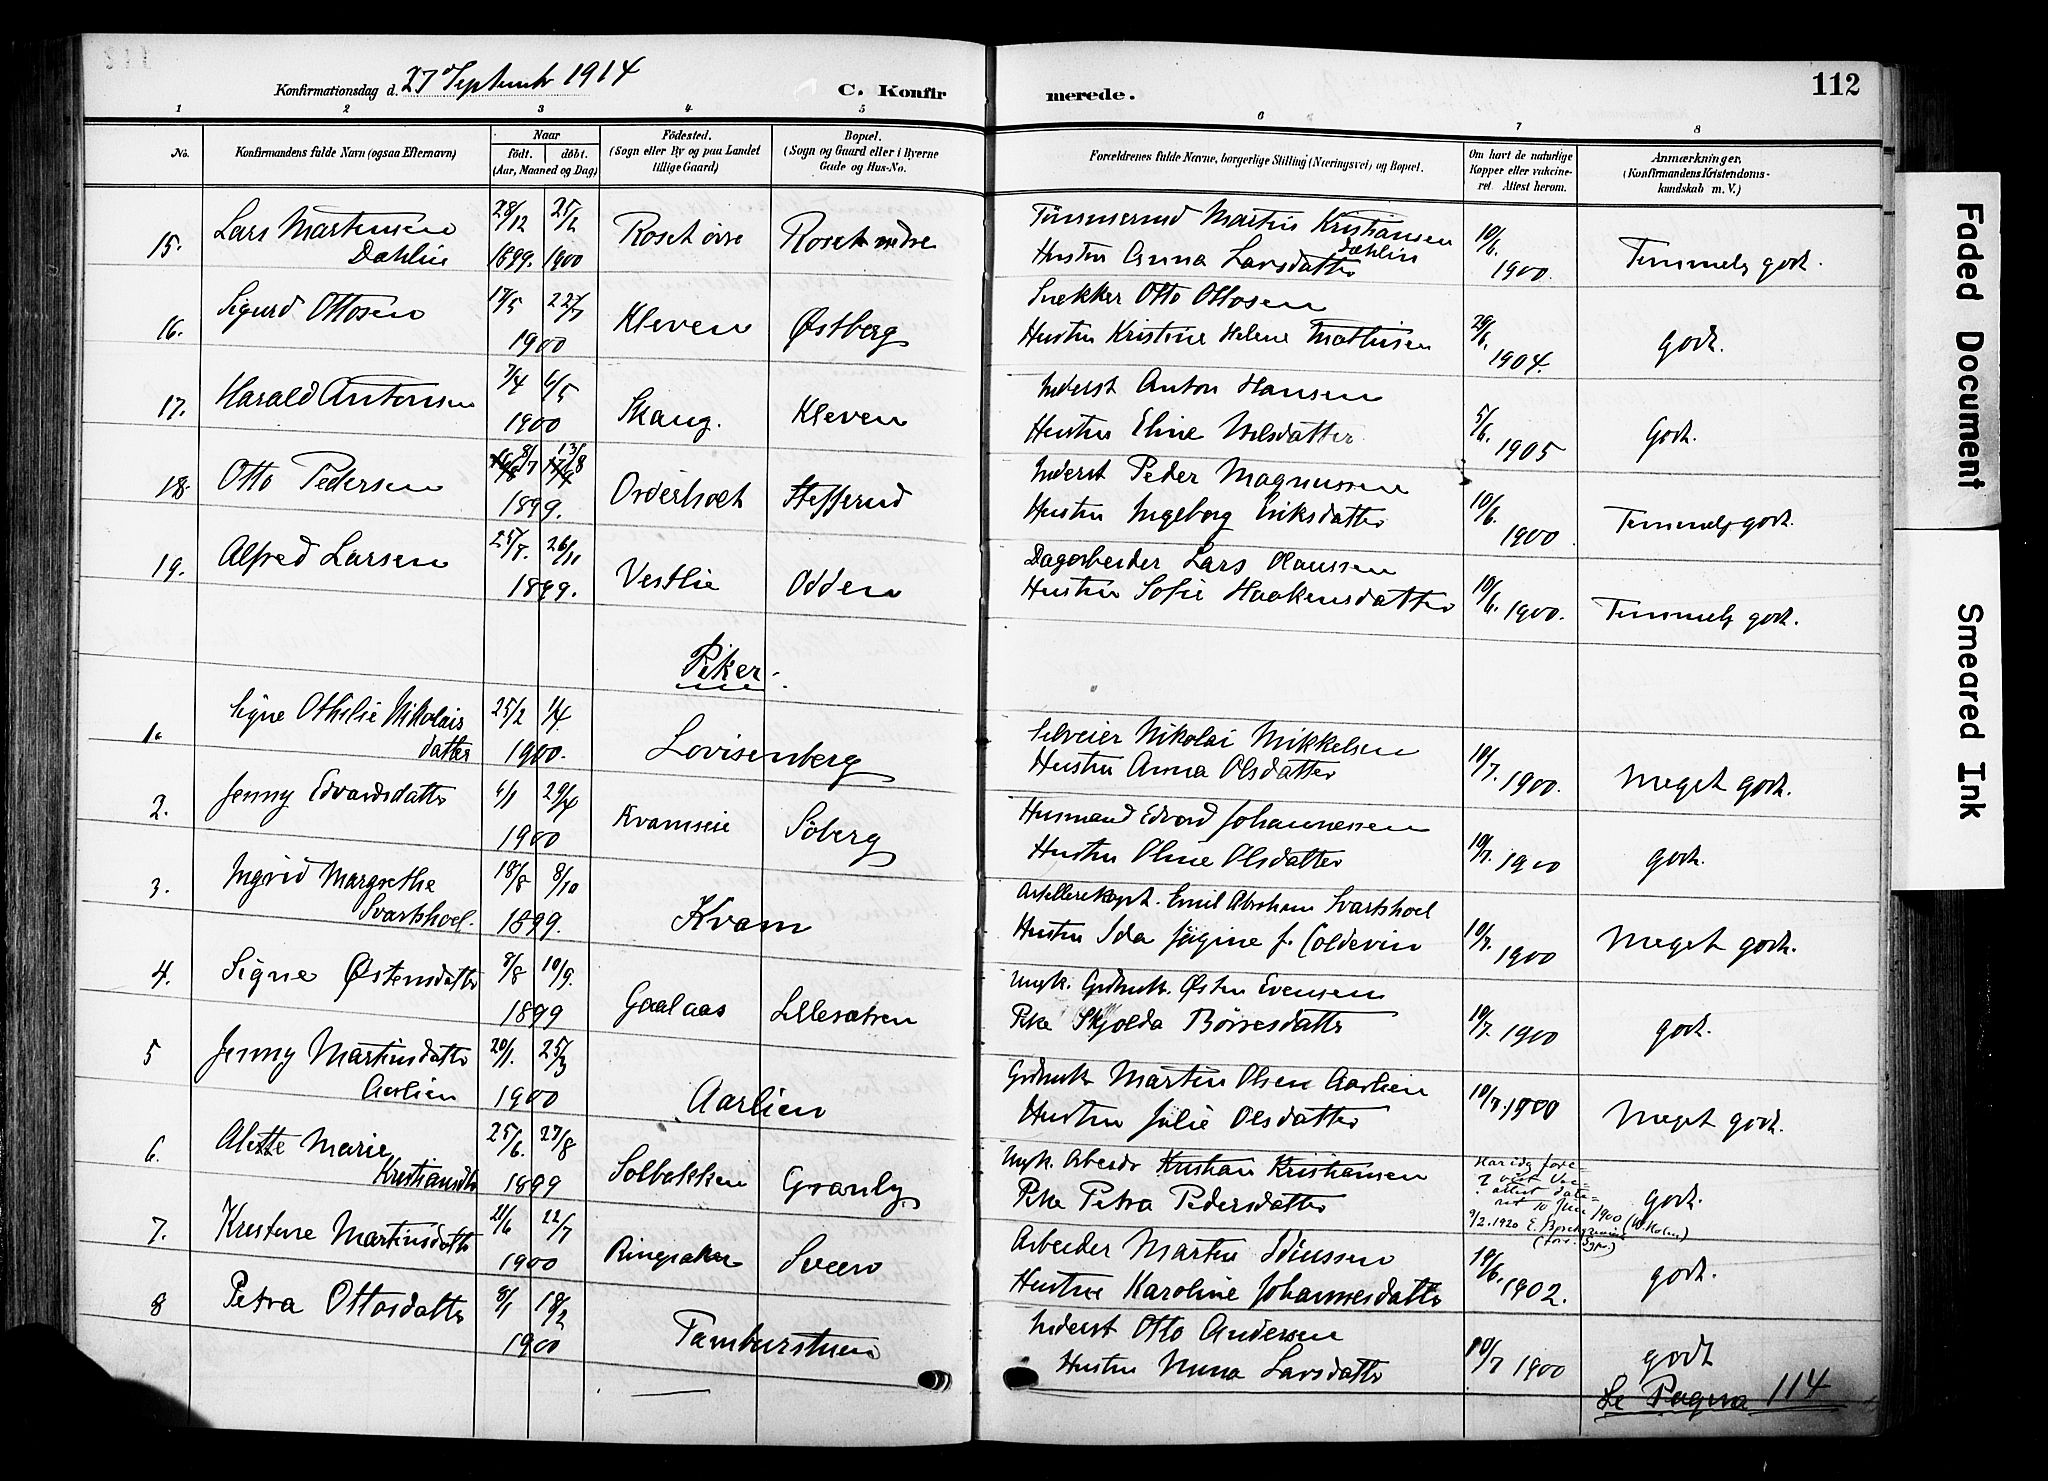 Konfirmationsdag d. 27 Septembr 1914
C. Konfirmerede.
112
1 2 3 4 5 6 7 8
No.
Konfirmandens fulde Navn (ogsaa Efternavn)
Naar
födt. döbt.
(Aar, Maaned og Dag)
Födested.
(Sogn eller By og paa Landet
tillige Gaard)
Bopæl.
(Sogn og Gaard eller i Byerne
Gade og Hus-No.
Forældrenes fulde Navne, borgerlige Stilling (Næringsvei) og Bopæl.
Om havt de naturlige
Kopper eller vakcine-
ret. Attest herom.
Anmærkninger,
(Konfirmandens Kristendoms-
kundskab m. V.)
15. Lars Martinsen Dæhlin
28/12 1899. 25/2 1900
Roset övre
Roset nedre
Tömmermd Martin Kristiansen Dæhlin
Hustru Anna Larsdatter
10/6. 1900.
Temmelg godt.
16. Sigurd Ottosen
17/5 22/7 1900
Kleven
Østberg
Snekker Otto Ottosen
Hustru Kristine Helene Mathisen
29/6. 1904.
godt.
17. Harald Antonsen
7/4 6/5 1900
Skaug.
Kleven
Inderst Anton Hansen
Hustru Eline Nilsdatter
5/6. 1905
Godt.
18. Otto Pedersen
8/7 13/8 1899.
Ovderhoet
Steffenrud
Inderst Peder Magnussen
Hustru Ingeborg Eriksdatter
10/6. 1900
Temmelg godt.
19. Alfred Larsen
25/7. 26/11 1899.
Vestlie
Odden
Dagarbeider Lars Olaussen
Hustru Sofie Haakensdatter
10/6. 1900.
Temmelg godt.
Piker.
1. Signe Othilie Nikolais
datter
25/2 1/4. 1900.
Lovisenberg
Selveier Nikolai Mikkelsen
Hustru Anna Olsdatter
10/7. 1900.
Meget godt.
2. Jenny Edvardsdatter
6/1 29/4 1900
Kvamseie
Söberg
Husmand Edvard Johannessen
Hustru Oline Olsdatter
10/7. 1900
godt.
3. Ingrid Margrethe
Svartshoel.
18/8 8/10 1899.
Kvam
Artillerikapt. Emil Abraham Svartshoel
Hustru Ida Jörgine f. Coldevin
10/7. 1900
Meget godt.
4. Signe Østensdatter
8/8 10/9. 1899
Gaalaas
Lillesætren
Ungk. Grdbruk. Østen Evensen
Pike Skjolda Börresdatter
10/7. 1900
godt.
5 Jenny Martinsdatter
Aarlien
20/1. 25/3 1900
Aarlien
Grdbruk Martin Olsen Aarlien
Hustru Julie Olsdatter
10/7. 1900
Meget godt.
6. Alette Marie
Kristiansdtr
25/6. 27/8 1899
Solbakken
Granly
Ungk. Arbeidr Kristian Kristiansen
Pike Petra Pedersdatter
Har idg fore-
vist Vac-
attest date-
ret 10 Juni 1900 (W. Holm)
9/2.1920
godt.
7. Kristine Martinsdatter
21/6 22/7 1900
Ringsaker
Sveen
Arbeider Martin
Hustru Karoline Johannesdatter
10/6. 1902.
godt.
8 Petra Ottosdatter
8/1 18/2 1900
Tamburstuen
Inderst Otto Andersen
Hustru Larsdatter
10/7 1900
godt
Se Pagina 114
Faded Document
Smeared Ink